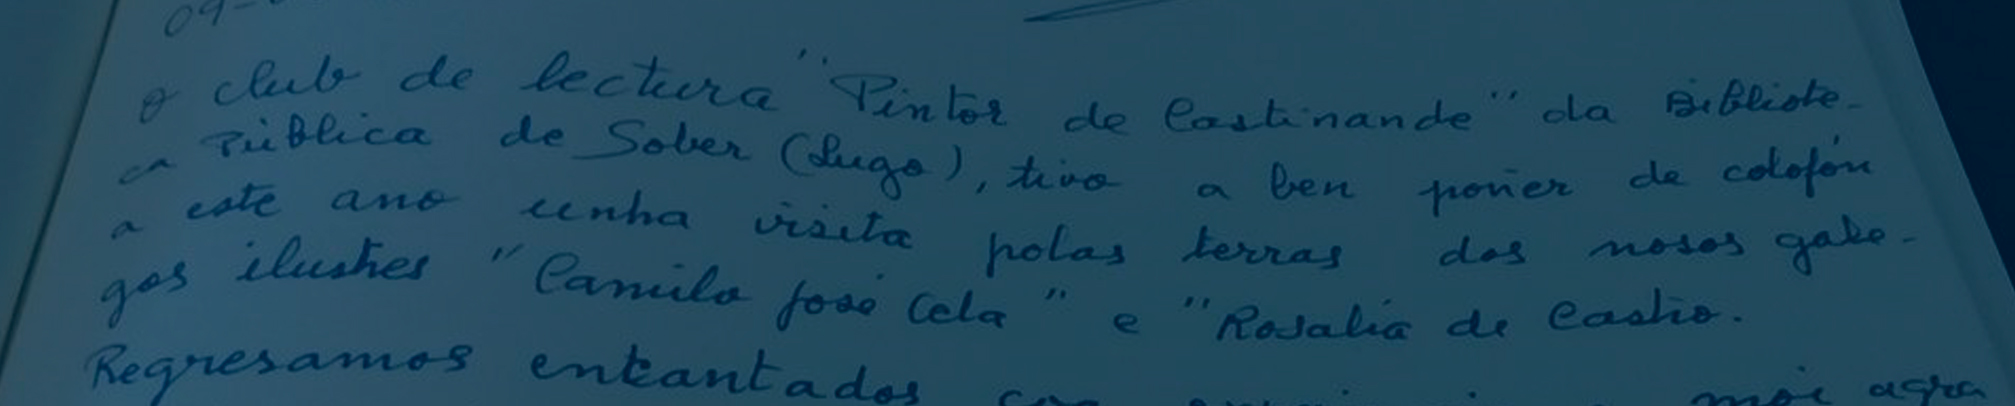 09-
O club de lectura "Pintor de Castinande" da Bibliote-
ca Pública de Sober (Lugo), tivo a ben poñer de colofón
a este ano unha visita polas terras dos nosos gale-
gos ilustres "Camilo José Cela" e "Rosalía de Castro.
Regresamos encantados